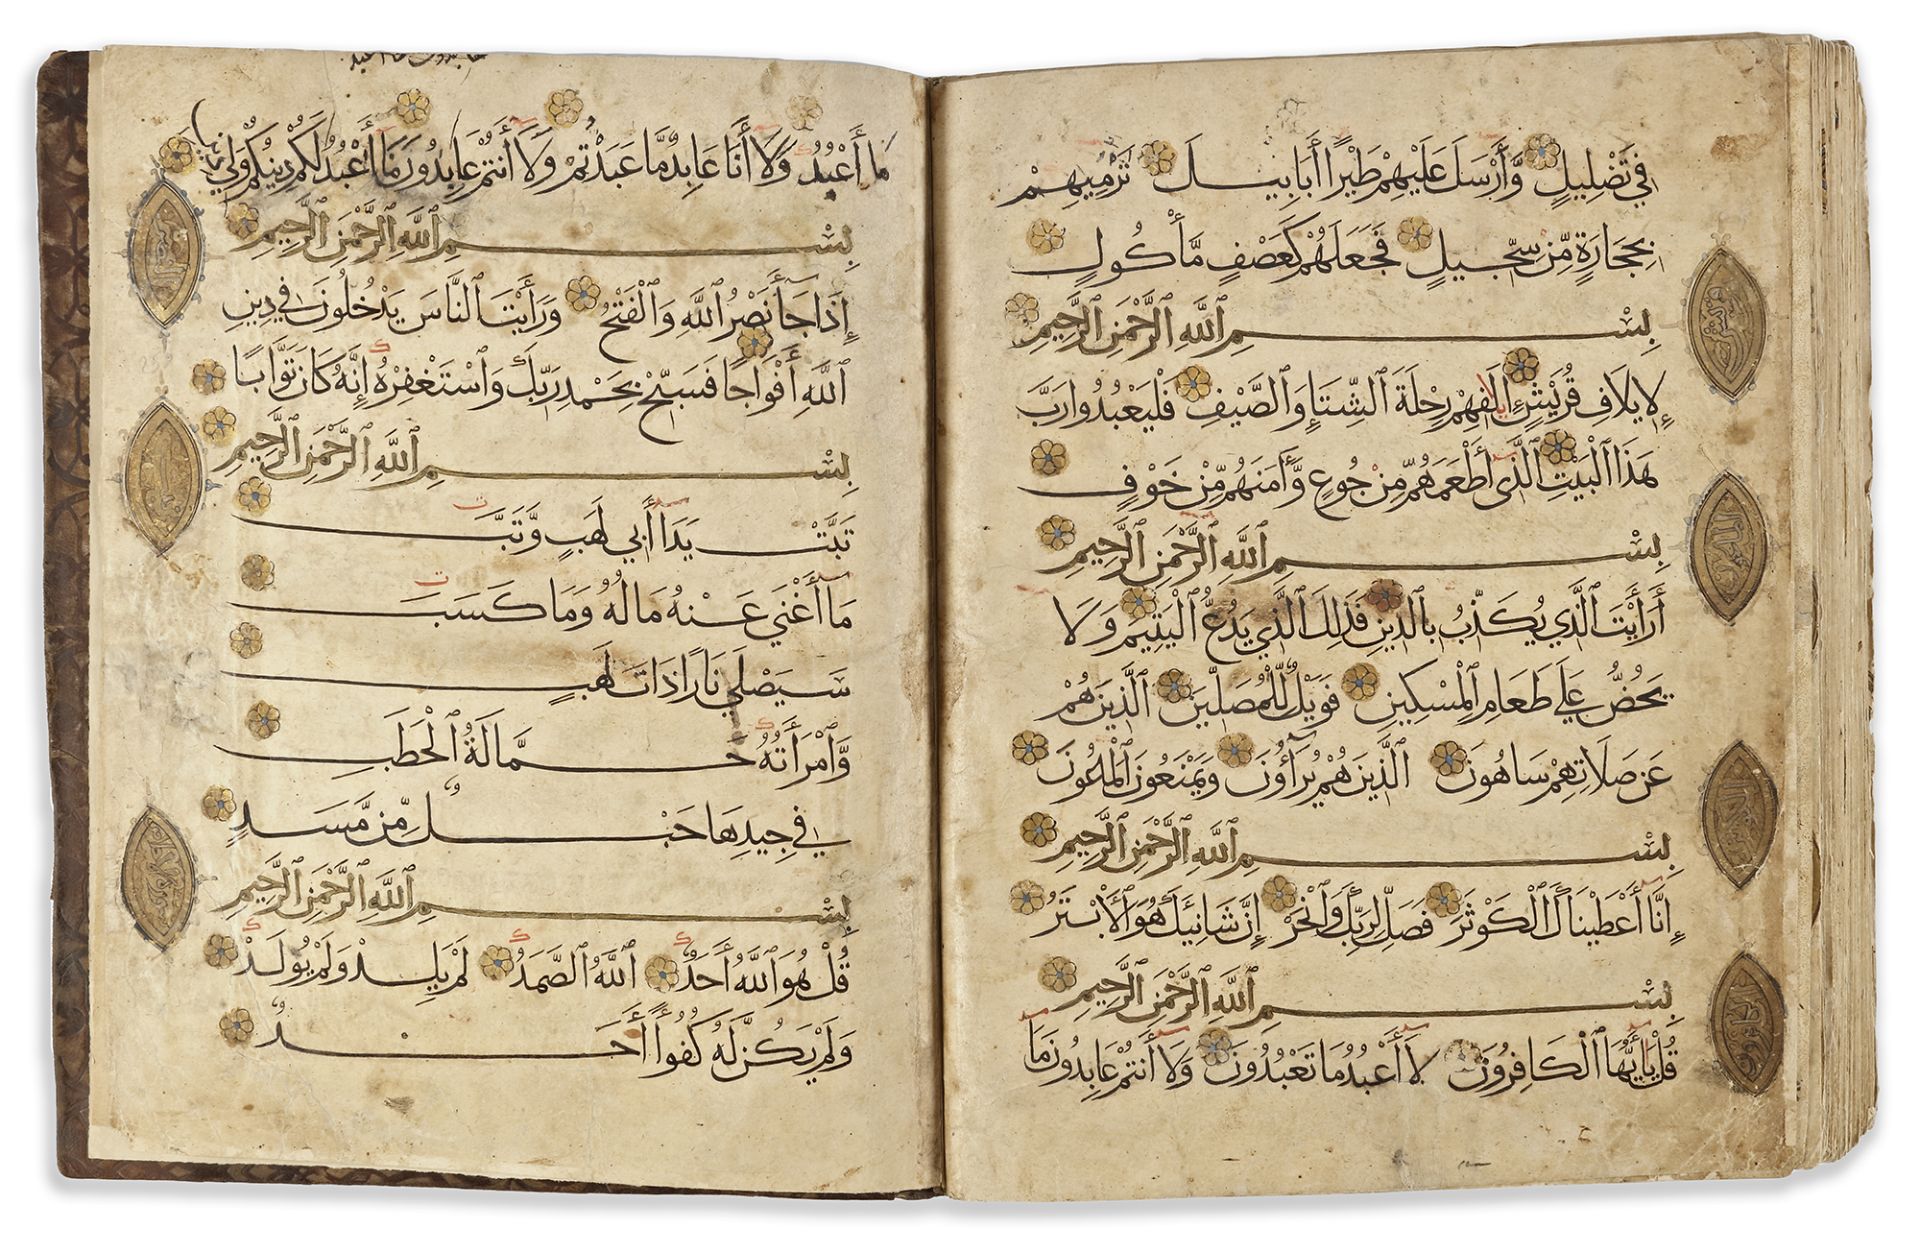 في تَضْلِيلٍ وَّأَرْسَلَ عَلَيْهِمْ طَيْرًا أَبَابِيلَ تَرْمِيهِمْ
بِحِجَارَةٍ مِّنْ سِجِّيلٍ فَجَعَلَهُمْ كَعَصْفٍ مَّأْكُولٍ
بِسْمِ اللَّهِ الرَّحْمَنِ الرَّحِيمِ
لِإِيلَافِ قُرَيْشٍ إِلَفِهِمْ رِحْلَةَ الشِّتَاءِ وَالصَّيْفِ فَلْيَعْبُدُوا رَبَّ
هَذَا الْبَيْتِ الَّذِي أَطْعَمَهُمْ مِّنْ جُوعٍ وَّآمَنَهُمْ مِّنْ خَوْفٍ
بِسْمِ اللَّهِ الرَّحْمَنِ الرَّحِيمِ
أَرَأَيْتَ الَّذِي يُكَذِّبُ بِالدِّينِ فَذَلِكَ الَّذِي يَدُعُّ الْيَتِيمَ وَلَا
يَحُضُّ عَلَى طَعَامِ الْمِسْكِينِ فَوَيْلٌ لِّلْمُصَلِّينَ الَّذِينَ هُمْ
عَنْ صَلَاتِهِمْ سَاهُونَ الَّذِينَ هُمْ يُرَآؤُنَ وَيَمْنَعُونَ الْمَاعُونَ
بِسْمِ اللَّهِ الرَّحْمَنِ الرَّحِيمِ
إِنَّا أَعْطَيْنَاكَ الْكَوْثَرَ فَصَلِّ لِرَبِّكَ وَانْحَرْ إِنَّ شَانِئَكَ هُوَ الْأَبْتَرُ
بِسْمِ اللَّهِ الرَّحْمَنِ الرَّحِيمِ
قُلْ يَا أَيُّهَا الْكَافِرُونَ لَا أَعْبُدُ مَا تَعْبُدُونَ وَلَا أَنْتُمْ عَابِدُونَ مَا
مَا أَعْبُدُ وَلَا أَنَا عَابِدٌ مَّا عَبَدْتُمْ وَلَا أَنْتُمْ عَابِدُونَ مَا أَعْبُدُ لَكُمْ دِينُكُمْ وَلِيَ
بِسْمِ اللَّهِ الرَّحْمَنِ الرَّحِيمِ
إِذَا جَآءَ نَصْرُ اللَّهِ وَالْفَتْحُ وَرَأَيْتَ النَّاسَ يَدْخُلُونَ فِي دِينِ
اللَّهِ أَفْوَاجًا فَسَبِّحْ بِحَمْدِ رَبِّكَ وَاسْتَغْفِرْهُ إِنَّهُ كَانَ تَوَّابًا
بِسْمِ اللَّهِ الرَّحْمَنِ الرَّحِيمِ
تَبَّتْ يَدَا أَبِي لَهَبٍ وَّتَبَّ
مَا أَغْنَى عَنْهُ مَالُهُ وَمَا كَسَبَ
سَيَصْلَى نَارًا ذَاتَ لَهَبٍ
وَّامْرَأَتُهُ حَمَّالَةُ الْحَطَبِ
فِي جِيدِهَا حَبْلٌ مِّنْ مَّسَدٍ
بِسْمِ اللَّهِ الرَّحْمَنِ الرَّحِيمِ
قُلْ هُوَ اللَّهُ أَحَدٌ اللَّهُ الصَّمَدُ لَمْ يَلِدْ وَلَمْ يُولَدْ
وَلَمْ يَكُنْ لَّهُ كُفُوًا أَحَدٌ